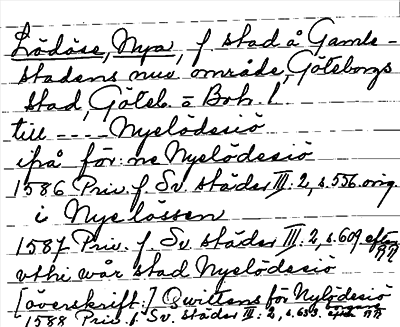 Lödöse, Nya, f stad å Gamle-
stadens nuv. område, Göteborgs
stad, Göteb. o Boh. l.
till ---- Nyelödesiö
ifrå för:ne Nyelödesiö
1586 Priv. f. Sv. städer III:2, s. 556. orig.
i Nye lössen
1587 Priv. f. Sv. städer III:2, s. 609
uthi wår stad Nyelödesiö
[överskrift:] Qwittens för Nylödesiö
1588 Priv. f. Sv. städer III:2, s. 653.